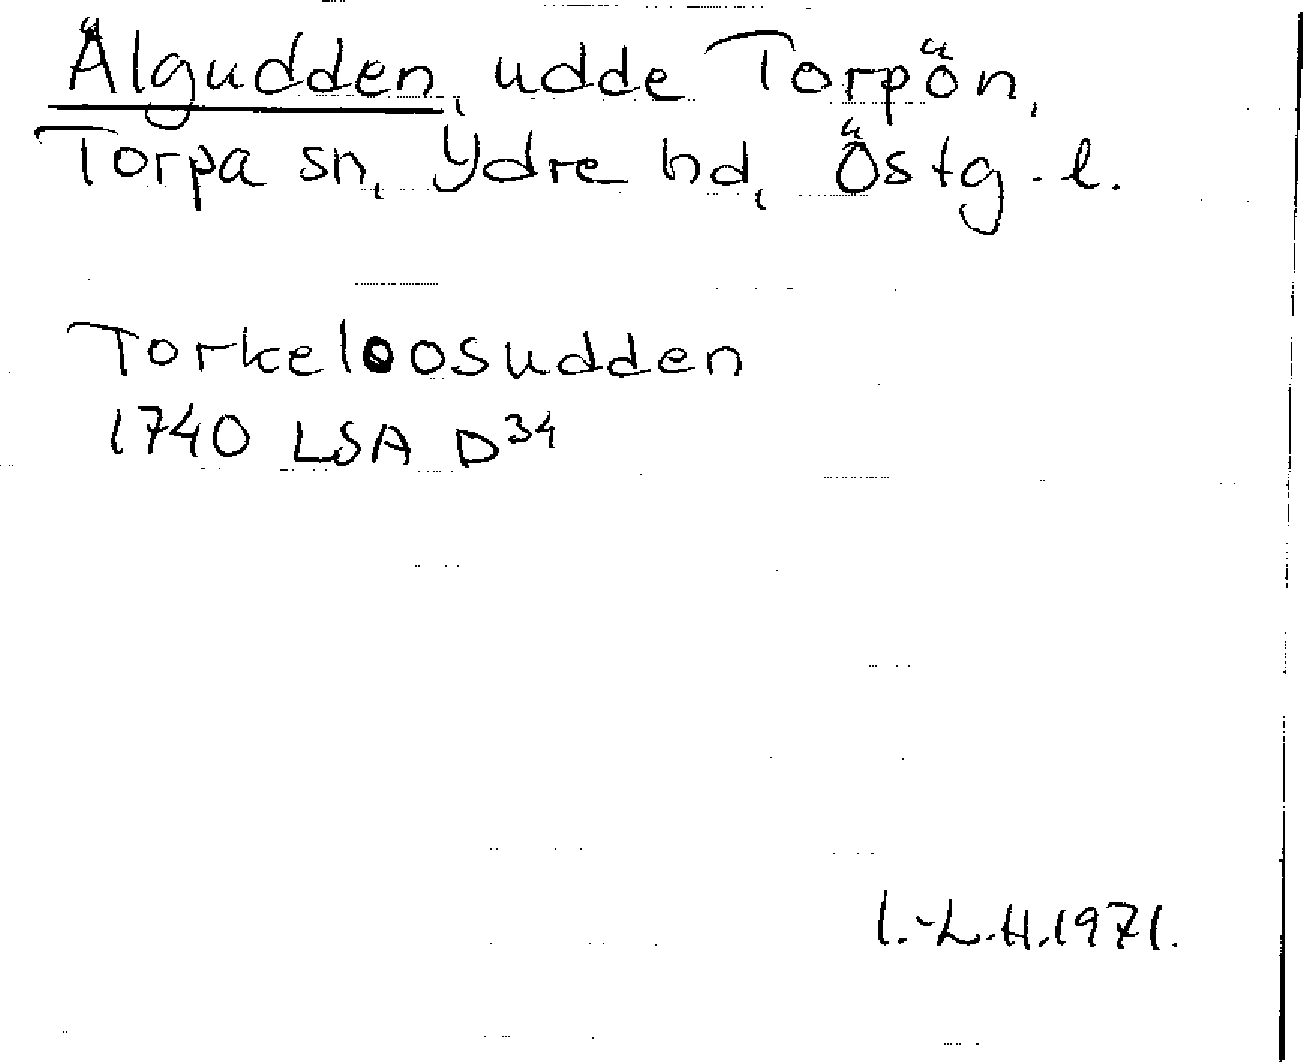 Älgudden, udde Torpön,
Torpa sn, Ydre hd, Östg. l.
Torkeloosudden
1740 LSA D³⁴
I.-L.H. 1971.